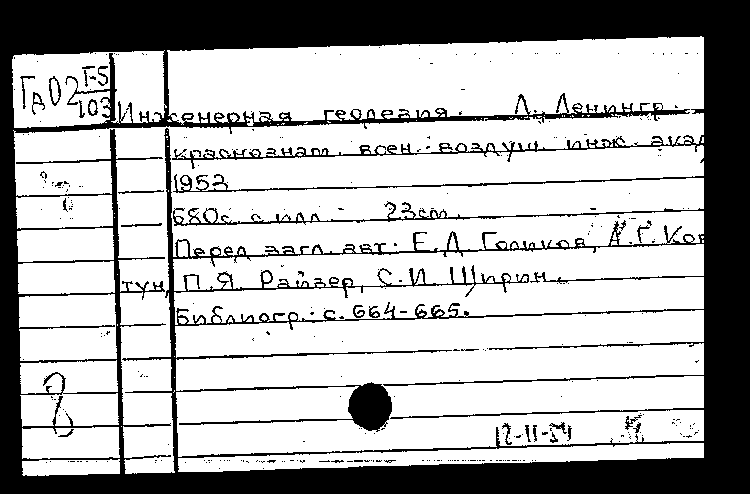 ГА02 Г-5
103
Инженерная геология. Л., Ленингр.
краснознам. воен.-воздуш. инж. акад
1953
680с. с илл. 23см.
Перед загл. авт: Е.Д. Голиков, А.Г. Ков
тун, П.Я. Райзер, С.И. Щирин.
Библиогр.: с. 664-665.
8
12-11-54